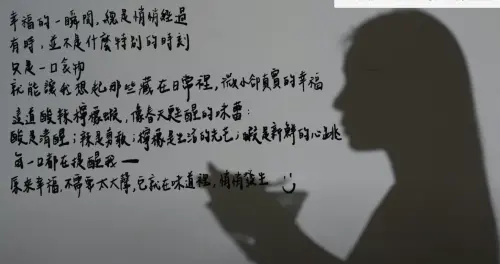 幸福的一瞬間，總是悄悄經過
有時，並不是什麼特別的時刻
只是一口食物
就能讓我想起那些藏在日常裡，微小卻真實的幸福
這道酸辣檸檬蝦，像春天甦醒的味蕾：
酸是清醒；辣是勇敢；檸檬是生活的光芒；蝦是新鮮的心跳
每一口都在提醒我—
原來幸福，不需要太大聲，它就在味道裡，悄悄發生